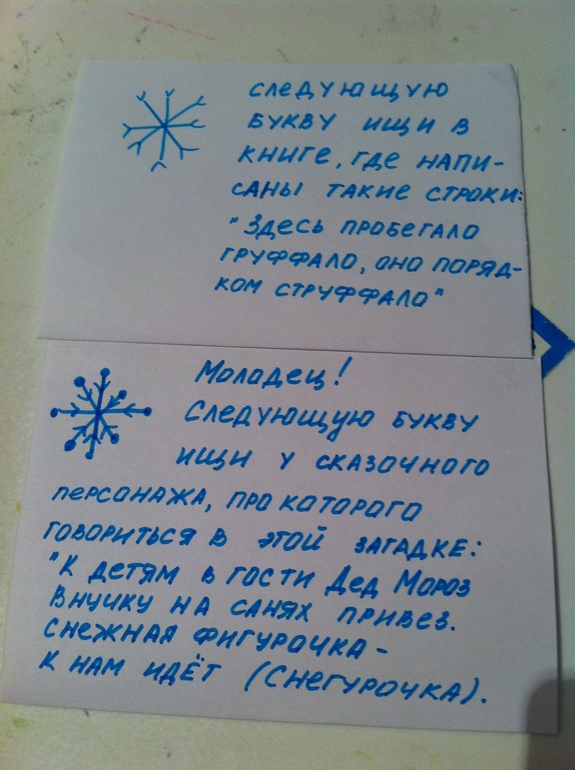 Следующую
букву ищи в
книге, где напи-
саны такие строки:
"Здесь пробегало
груффало, оно поряд-
ком струффало"
Молодец!
Следующую букву
ищи у сказочного
персонажа, про которого
говориться в этой загадке:
"К детям в гости Дед Мороз
Внучку на санях привез.
Снежная фигурочка -
К нам идёт (Снегурочка).